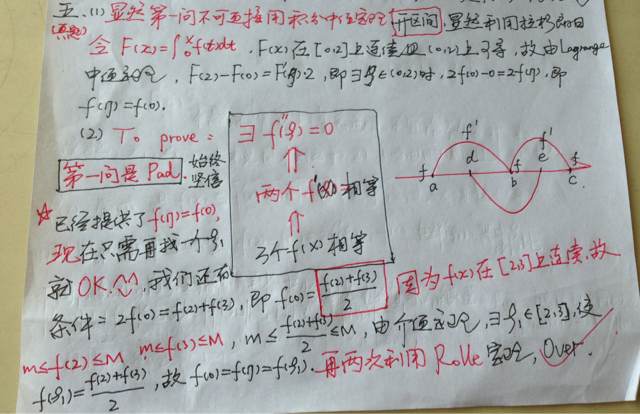 五.(1)显然第一问不可直接用积分中值定理 开区间,显然利用拉格朗日
(真题) 令 F(x)=∫₀ˣf(t)dt,F(x)在[0,2]上连续且(0,2)上可导,故由Lagrange
中值定理,F(2)-F(0)=F'(η)·2,即∃η∈(0,2)时,2f(0)-0=2f(η),即
f(η)=f(0).
(2) To prove:
∃ f''(ξ)=0
⇑
两个 f'(x) 相等
⇑
3个f(x)相等
第一问是Pad. 始终坚信
☆已经提供了f(η)=f(0),
现在只需再找一个ξ₁
就OK.我们还有
条件=2f(0)=f(2)+f(3),即 f(0)= (f(2)+f(3))/2 因为f(x)在[2,3]上连续,故
m≤f(2)≤M m≤f(3)≤M, m≤ (f(2)+f(3))/2 ≤M,由介值定理,∃ξ₁∈[2,3],使
f(ξ₁)= (f(2)+f(3))/2,故 f(0)=f(η)=f(ξ₁).再两次利用Rolle定理,Over.
f' f'
f d f e f
a b c